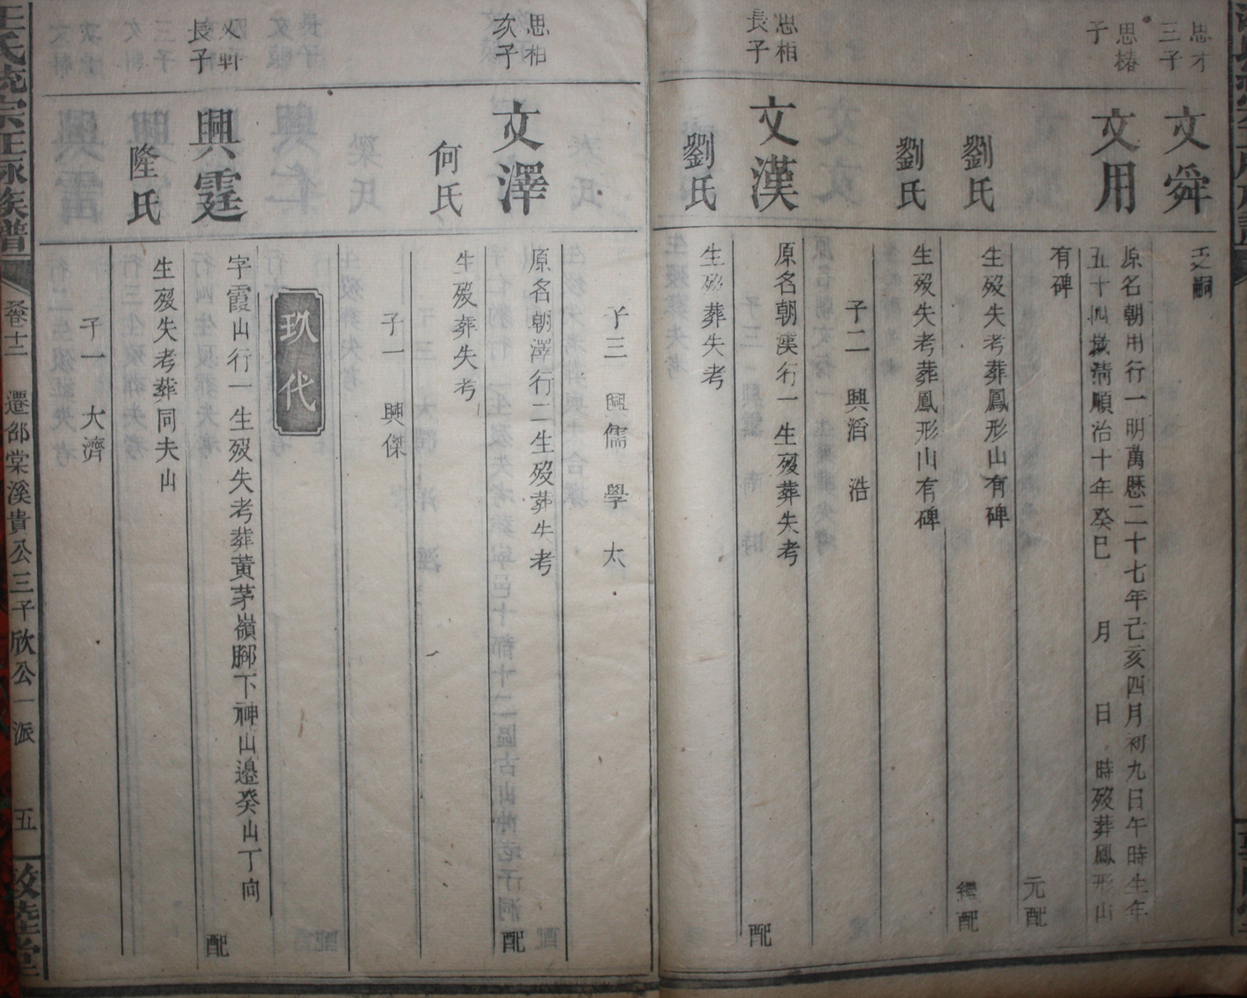 思才
三子
文舜
乏嗣
思椿
子
文用
原名朝用行一明萬歷二十七年己亥四月初九日午時生年
五十四歲清順治十年癸巳 月 日 時歿葬鳳形山
有碑
元配
劉氏
生歿失考葬鳳形山有碑
繼配
劉氏
生歿失考葬鳳形山有碑
子二 興滔 浩
思柏
長子
文漢
原名朝漢行一生歿葬失考
配
劉氏
生歿葬失考
子三 興儒 學 太
思柏
次子
文澤
原名朝澤行二生歿葬失考
配
何氏
生歿葬失考
子一 興傑
玖代
文軒
長子
興霆
字霞山行一生歿失考葬黃茅嶺腳下神山邊癸山丁向
配
隆氏
生歿失考葬同夫山
子一 大濟
卷十二 遷邵棠溪貴公三子欣公一派 五
敦睦堂